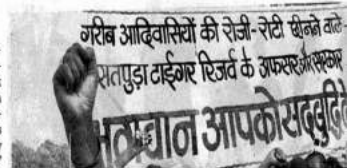 गरीब आदिवासियों की रोजी-रोटी छीनने वाले-
सतपुड़ा टाईगर रिजर्व के अफसर और सरकार
भगवान आपको सदबुद्धि दे